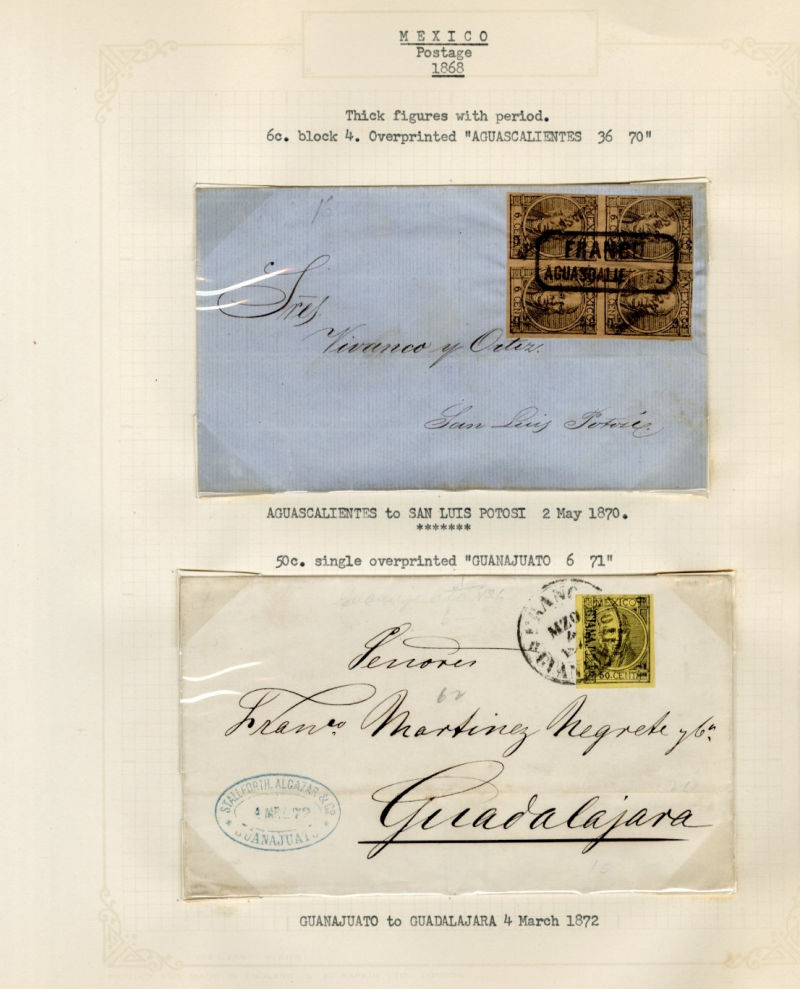 MEXICO
Postage
1868
Thick figures with period.
6c. block 4. Overprinted "AGUASCALIENTES 36 70"
FRANCO
AGUASCALIENTES
6 CENT
MEXICO
Sres
Vivanco y Ortiz.
San Luis Potosí.
AGUASCALIENTES to SAN LUIS POTOSI 2 May 1870.
*******
50c. single overprinted "GUANAJUATO 6 71"
FRANCO
MZO
4
GUANAJUATO
MEXICO
50 CENT
Señores
Franco. Martinez Negrete y Ca.
Guadalajara
STALLFORTH, ALCAZAR & Co
4 MRZ. 72
GUANAJUATO
GUANAJUATO to GUADALAJARA 4 March 1872